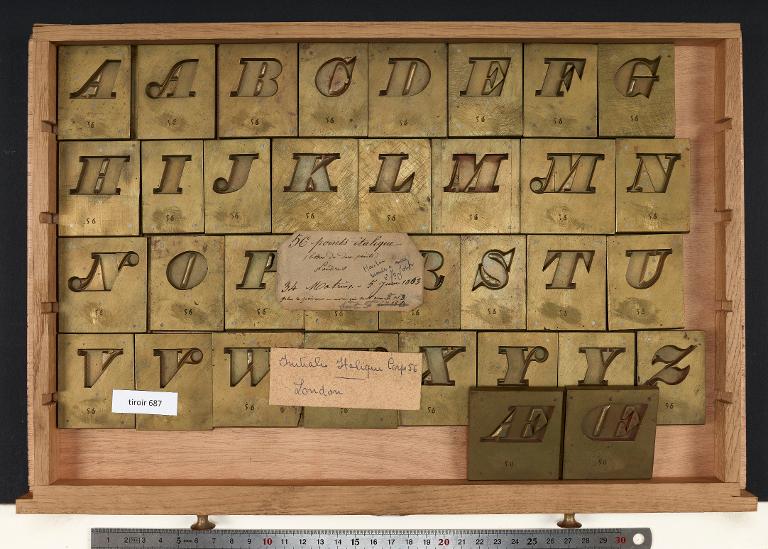 A A B C D E F G
56 56 56 56 56 56 56 56
H I J K L M M N
56 56 56 56 56 56 56 56
N O P S T U
56 56 56 56 56 56
56 points italique
Londres
34 Matrices - 5 Juin 1863
V V W X Y Y Z
56 56
Initiales Italique Corps 56
London
tiroir 687
Æ Œ
50 50
1 2 3 4 5 6 7 8 9 10 11 12 13 14 15 16 17 18 19 20 21 22 23 24 25 26 27 28 29 30